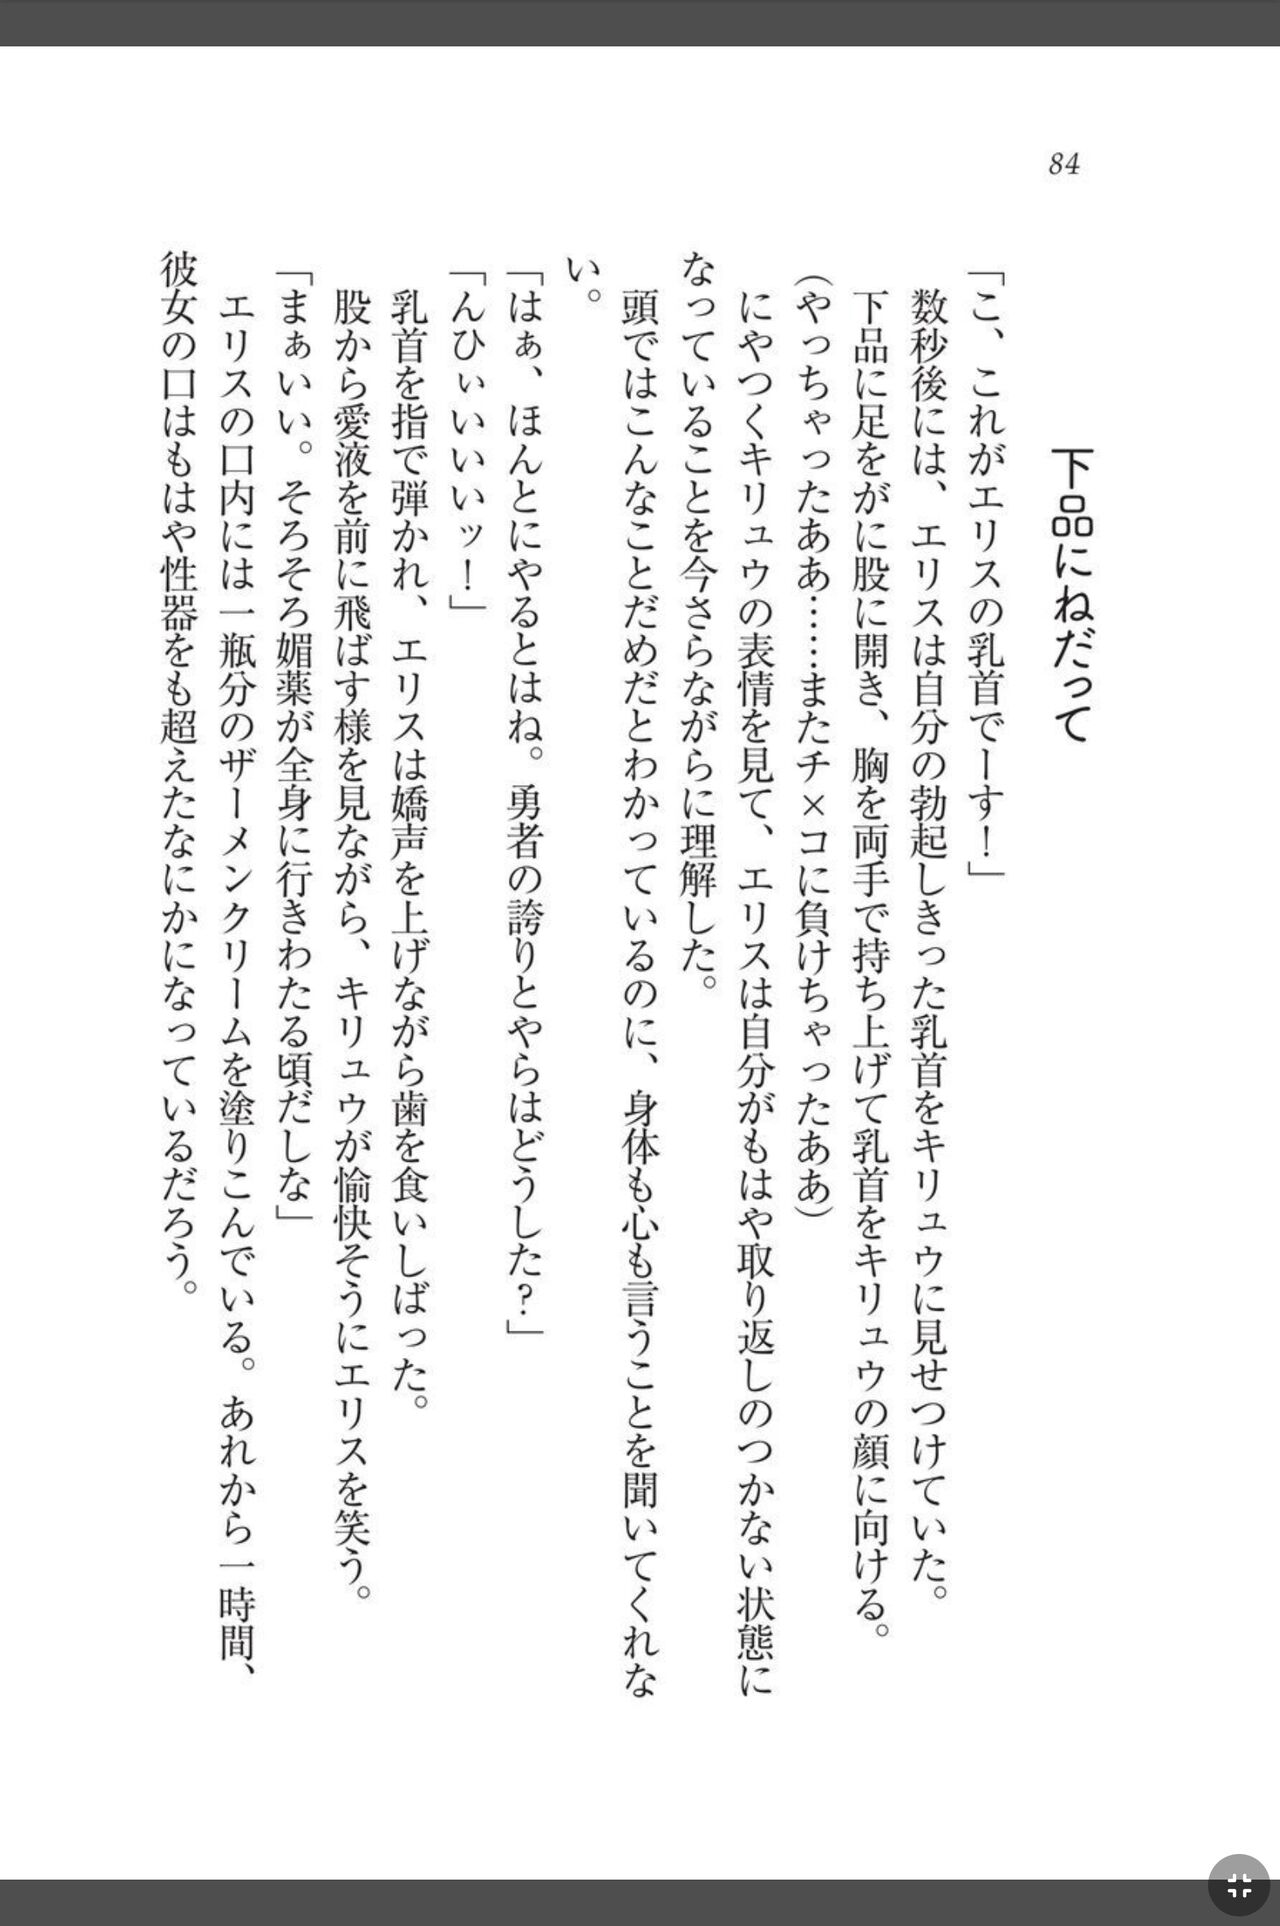 84
下品にねだって
「こ、これがエリスの乳首でーす！」
数秒後には、エリスは自分の勃起しきった乳首をキリュウに見せつけていた。
下品に足をがに股に開き、胸を両手で持ち上げて乳首をキリュウの顔に向ける。
（やっちゃったああ……またチ×コに負けちゃったああ）
にやつくキリュウの表情を見て、エリスは自分がもはや取り返しのつかない状態に
なっていることを今さらながらに理解した。
頭ではこんなことだめだとわかっているのに、身体も心も言うことを聞いてくれな
い。
「はぁ、ほんとにやるとはね。勇者の誇りとやらはどうした？」
「んひぃいいいッ！」
乳首を指で弾かれ、エリスは嬌声を上げながら歯を食いしばった。
股から愛液を前に飛ばす様を見ながら、キリュウが愉快そうにエリスを笑う。
「まぁいい。そろそろ媚薬が全身に行きわたる頃だしな」
エリスの口内には一瓶分のザーメンクリームを塗りこんでいる。あれから一時間、
彼女の口はもはや性器をも超えたなにかになっているだろう。